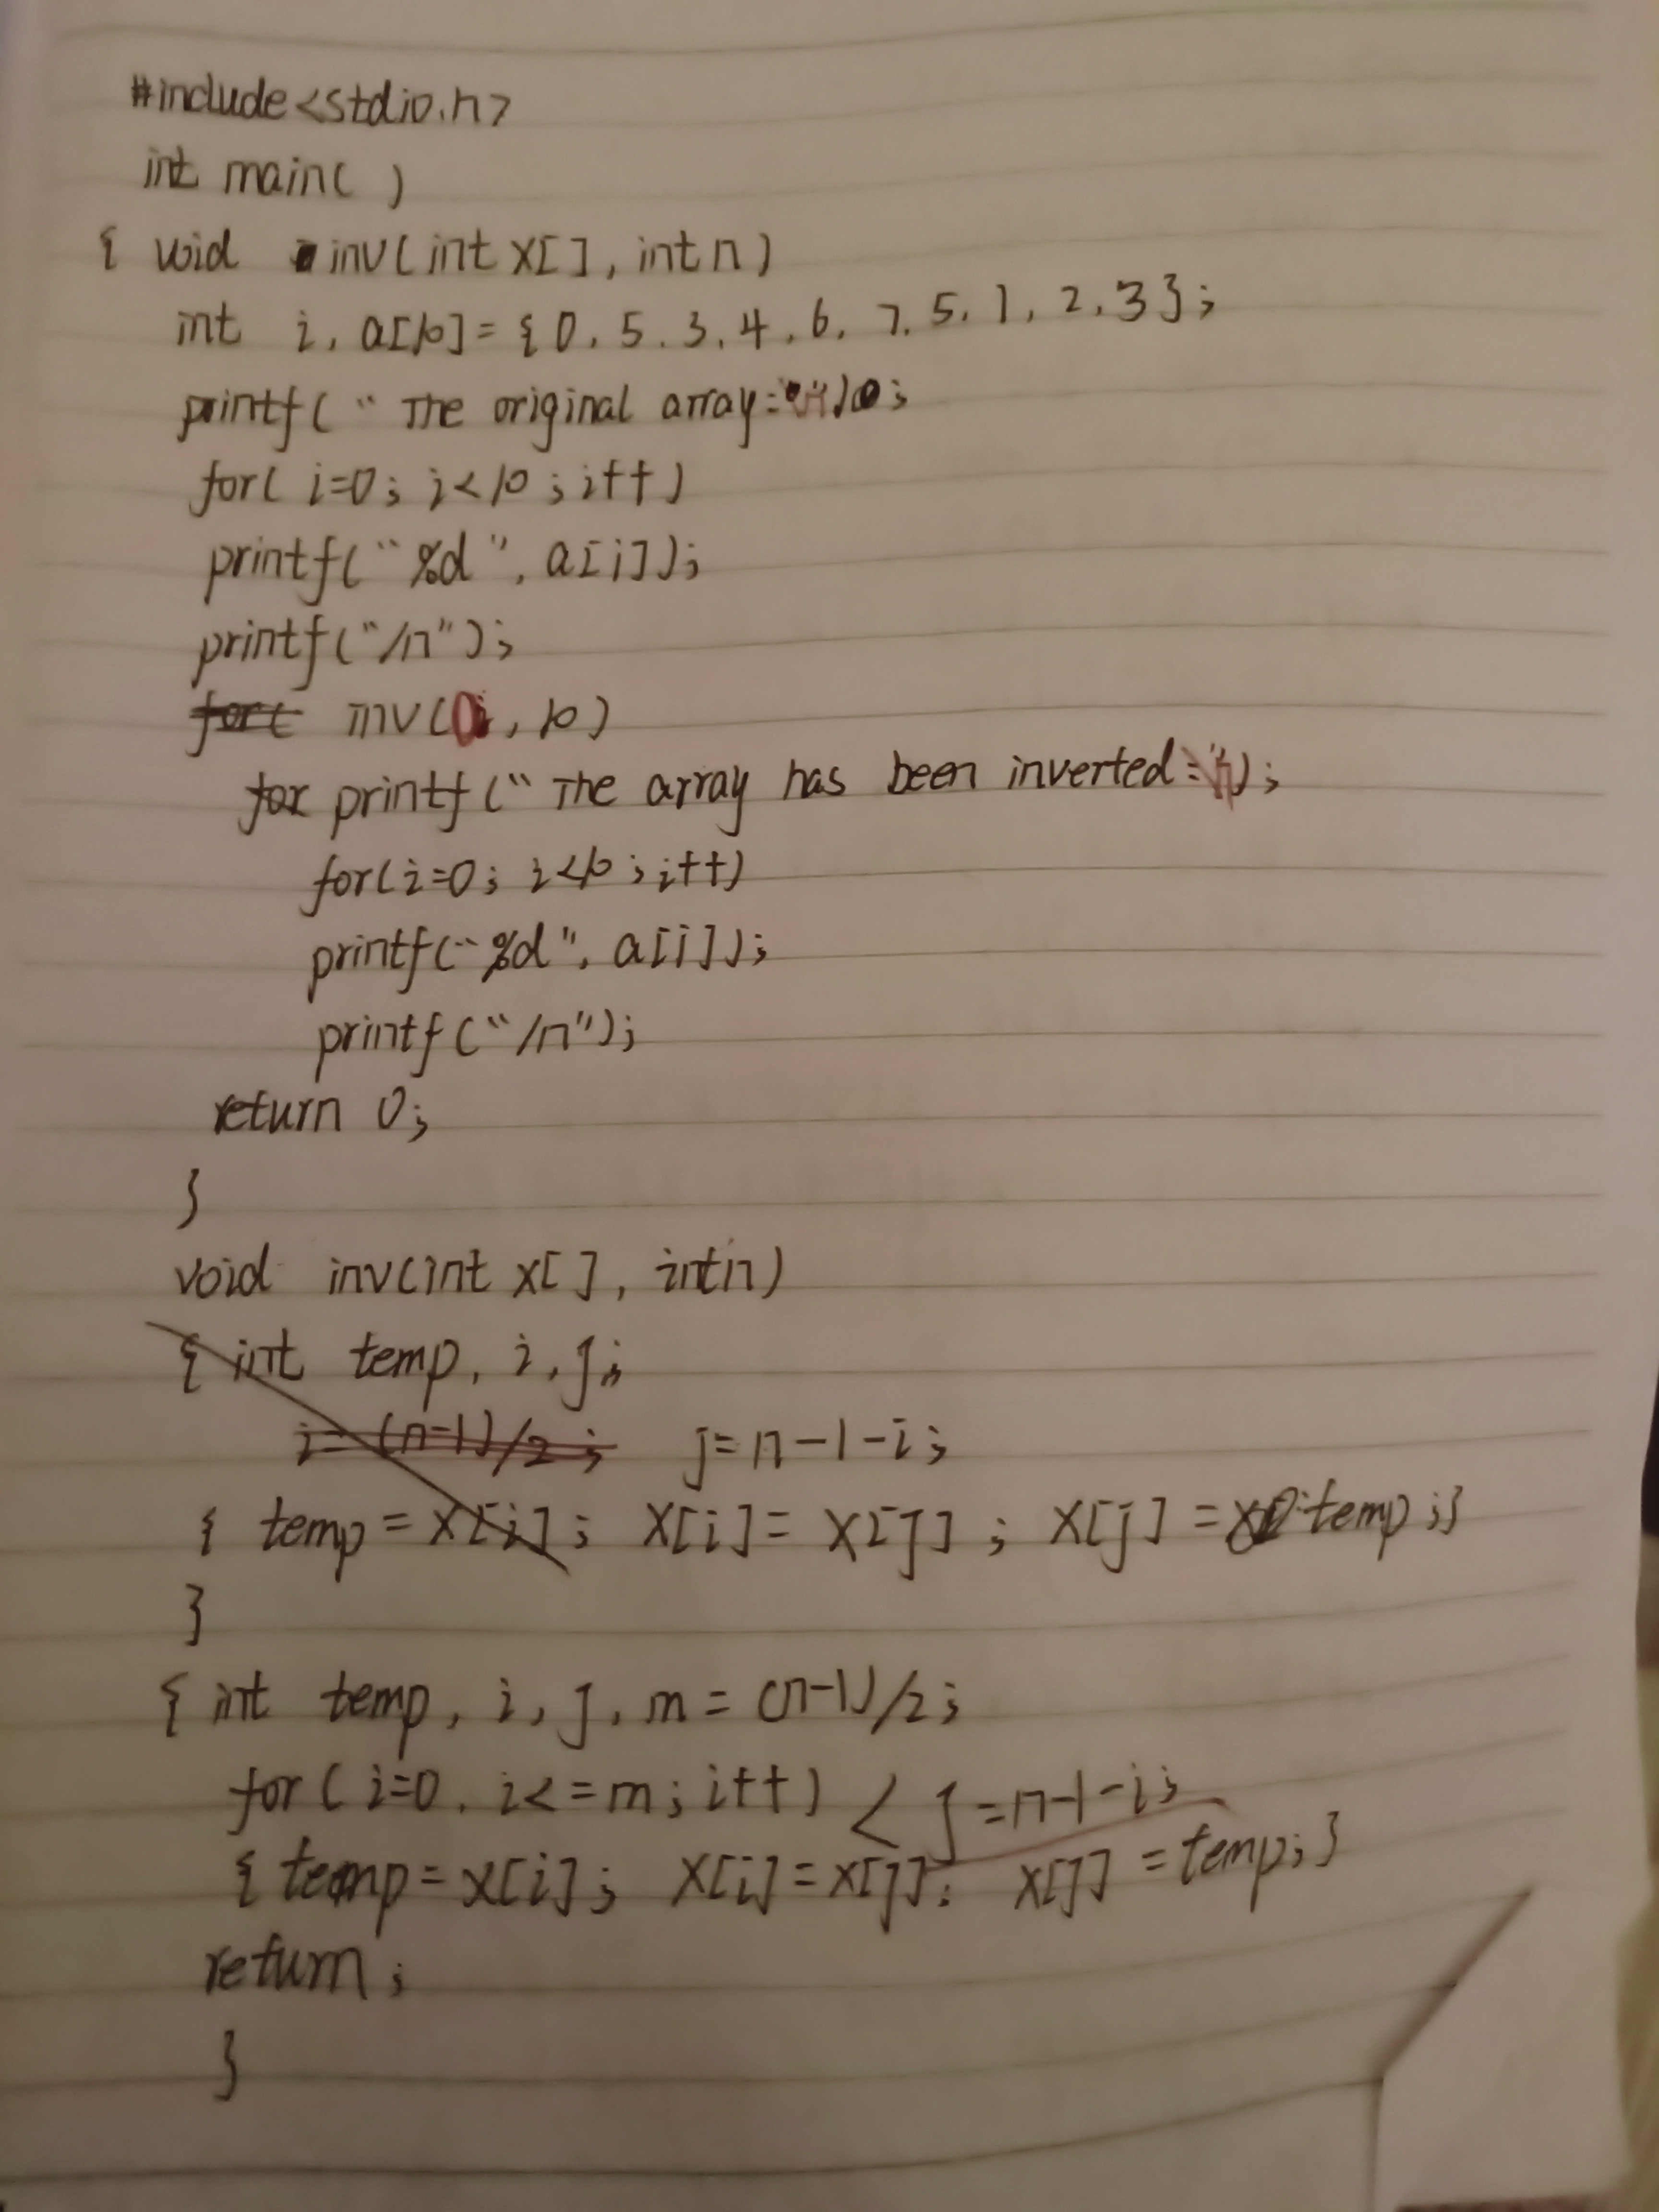 #include<stdio.h>
int main( )
{ void inv(int x[], int n)
int i, a[10]={0, 5, 3, 4, 6, 7, 5, 1, 2, 3};
printf(" The original array: );
for( i=0; i<10; i++)
printf("%d", a[i]);
printf("/n");
inv( , 10)
printf("The array has been inverted: );
for(i=0; i<10; i++)
printf("%d", a[i]);
printf("/n");
return 0;
}
void inv(int x[], int n)
{ int temp, i, j;
i=(n-1)/2; j=n-1-i;
{ temp=x[i]; x[i]=x[j]; x[j]= temp;}
}
{ int temp, i, j, m=(n-1)/2;
for(i=0, i<=m; i++) < j=n-1-i;
{ temp=x[i]; x[i]=x[j]; x[j]=temp;}
return;
}